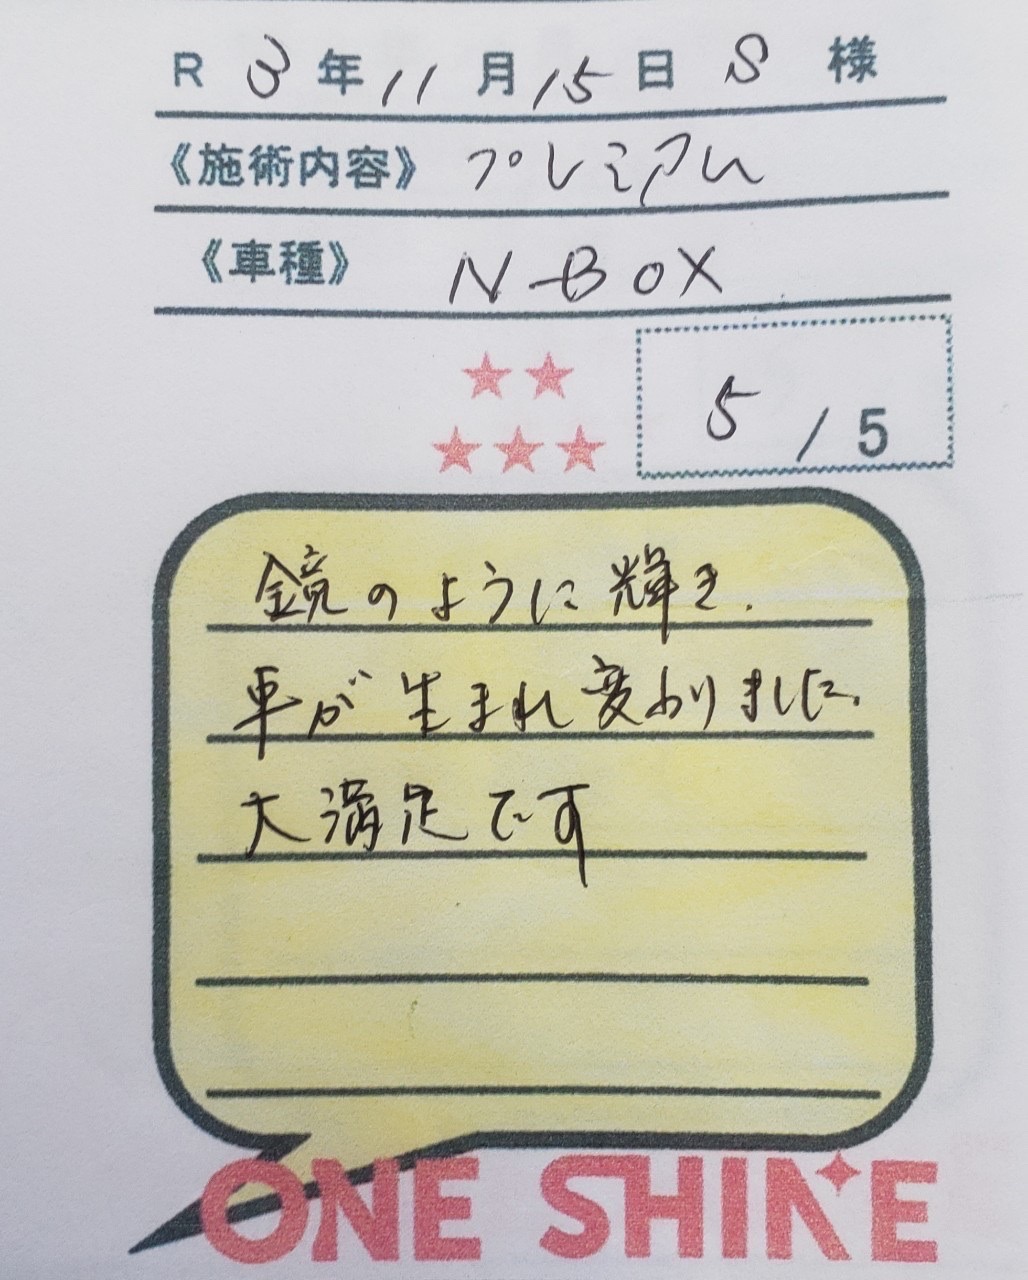 R 3年11月15日 S 様
《施術内容》 プレミアム
《車種》 N-BOX
5 / 5
鏡のように輝き、
車が生まれ変わりました。
大満足です
ONE SHINE